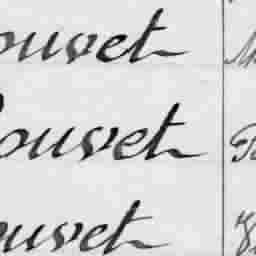 ouvet
ouvet
ouvet